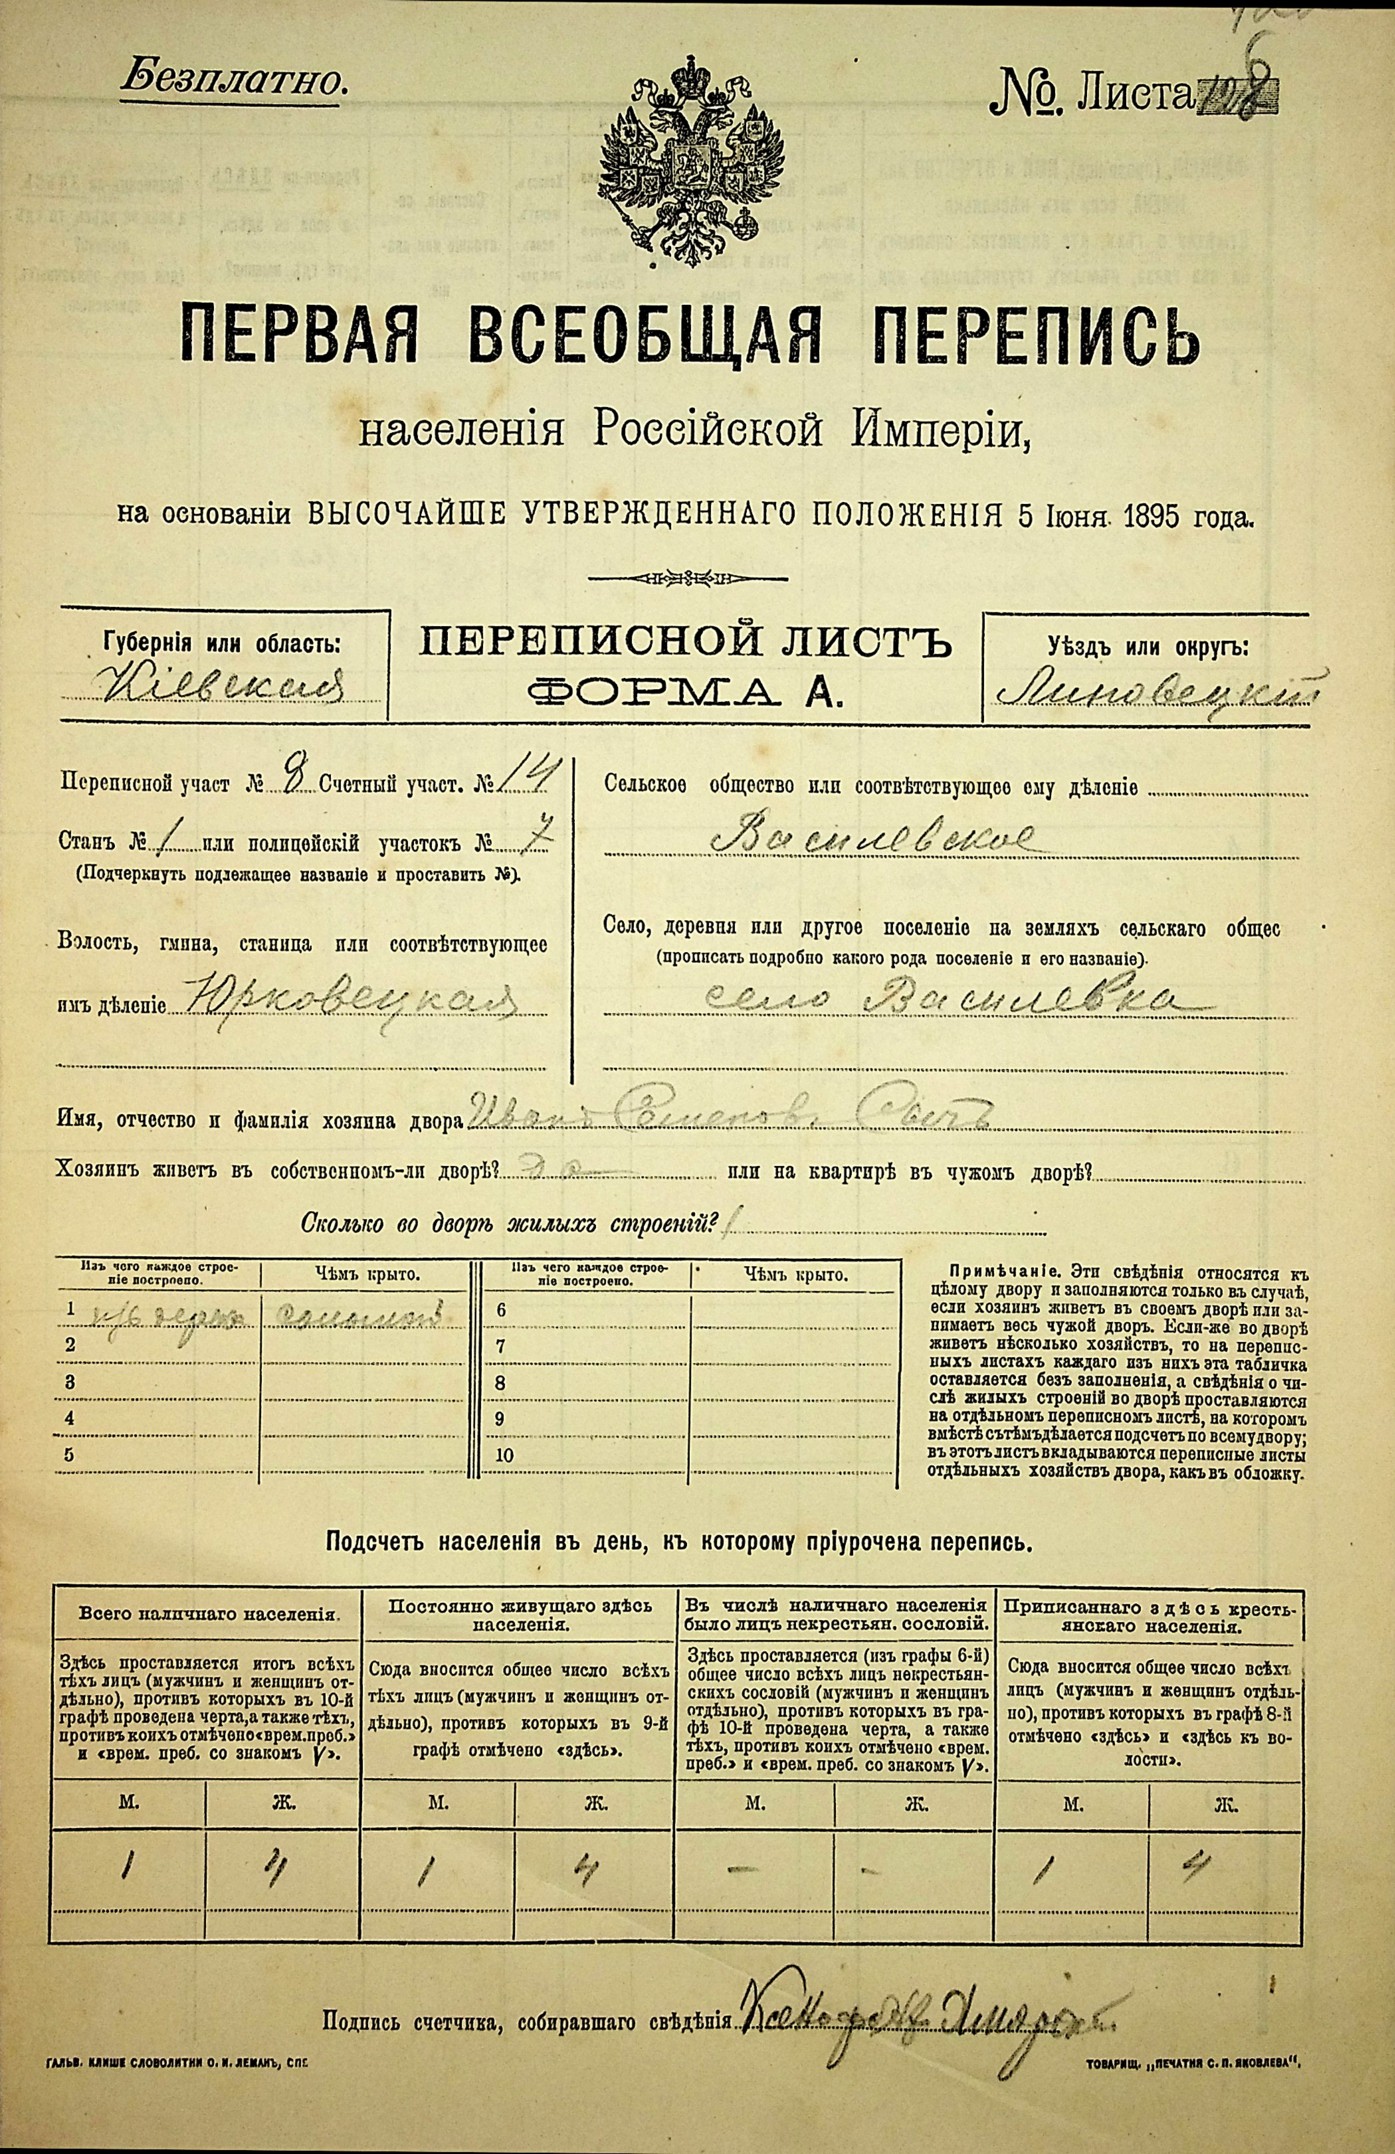 Безплатно.
№. Листа
ПЕРВАЯ ВСЕОБЩАЯ ПЕРЕПИСЬ
населенія Россійской Имперіи,
на основаніи ВЫСОЧАЙШЕ УТВЕРЖДЕННАГО ПОЛОЖЕНІЯ 5 Іюня 1895 года.
Губернія или область:
Кіевская
ПЕРЕПИСНОЙ ЛИСТЪ
ФОРМА А.
Уѣздъ или округъ:
Липовецкій
Переписной участ № 8 Счетный участ. № 14
Станъ № 1 или полицейскій участокъ № 7
(Подчеркнуть подлежащее названіе и проставить №).
Волость, гмина, станица или соотвѣтствующее
имъ дѣленіе Юрковецкая
Сельское общество или соотвѣтствующее ему дѣленіе
Василевское
Село, деревня или другое поселеніе на земляхъ сельскаго общес
(прописать подробно какого рода поселеніе и его названіе).
село Василевка
Имя, отчество и фамилія хозяина двора Иванъ Семенов. Сычъ
Хозяинъ живетъ въ собственномъ-ли дворѣ? да или на квартирѣ въ чужомъ дворѣ?
Сколько во дворѣ жилыхъ строеній? 1
Изъ чего каждое строе-
ніе построено.
Чѣмъ крыто.
Изъ чего каждое строе-
ніе построено.
Чѣмъ крыто.
1 изъ дерева соломой 6
2 7
3 8
4 9
5 10
Примѣчаніе. Эти свѣдѣнія относятся къ
цѣлому двору и заполняются только въ случаѣ,
если хозяинъ живетъ въ своемъ дворѣ или за-
нимаетъ весь чужой дворъ. Если-же во дворѣ
живетъ нѣсколько хозяйствъ, то на перепис-
ныхъ листахъ каждаго изъ нихъ эта табличка
оставляется безъ заполненія, а свѣдѣнія о чи-
слѣ жилыхъ строеній во дворѣ проставляются
на отдѣльномъ переписномъ листѣ, на которомъ
вмѣстѣ съ тѣмъ дѣлается подсчетъ по всему двору;
въ этотъ листъ вкладываются переписные листы
отдѣльныхъ хозяйствъ двора, какъ въ обложку.
Подсчетъ населенія въ день, къ которому пріурочена перепись.
Всего наличнаго населенія.
Здѣсь проставляется итогъ всѣхъ
тѣхъ лицъ (мужчинъ и женщинъ от-
дѣльно), противъ которыхъ въ 10-й
графѣ проведена черта, а также тѣхъ,
противъ коихъ отмѣчено «врем. преб.»
и «врем. преб. со знакомъ V».
Постоянно живущаго здѣсь
населенія.
Сюда вносится общее число всѣхъ
тѣхъ лицъ (мужчинъ и женщинъ от-
дѣльно), противъ которыхъ въ 9-й
графѣ отмѣчено «здѣсь».
Въ числѣ наличнаго населенія
было лицъ некрестьян. сословій.
Здѣсь проставляется (изъ графы 6-й)
общее число всѣхъ лицъ некрестьян-
скихъ сословій (мужчинъ и женщинъ
отдѣльно), противъ которыхъ въ гра-
фѣ 10-й проведена черта, а также
тѣхъ, противъ коихъ отмѣчено «врем.
преб.» и «врем. преб. со знакомъ V».
Приписаннаго здѣсь кресть-
янскаго населенія.
Сюда вносится общее число всѣхъ
лицъ (мужчинъ и женщинъ отдѣль-
но), противъ которыхъ въ графѣ 8-й
отмѣчено «здѣсь» и «здѣсь къ во-
лости».
М. Ж. М. Ж. М. Ж. М. Ж.
1 4 1 4 – – 1 4
Подпись счетчика, собиравшаго свѣдѣнія
ГАЛЬВ. КЛИШЕ СЛОВОЛИТНИ О. И. ЛЕМАНЪ, СПБ
ТОВАРИЩ. „ПЕЧАТНЯ С. П. ЯКОВЛЕВА“,